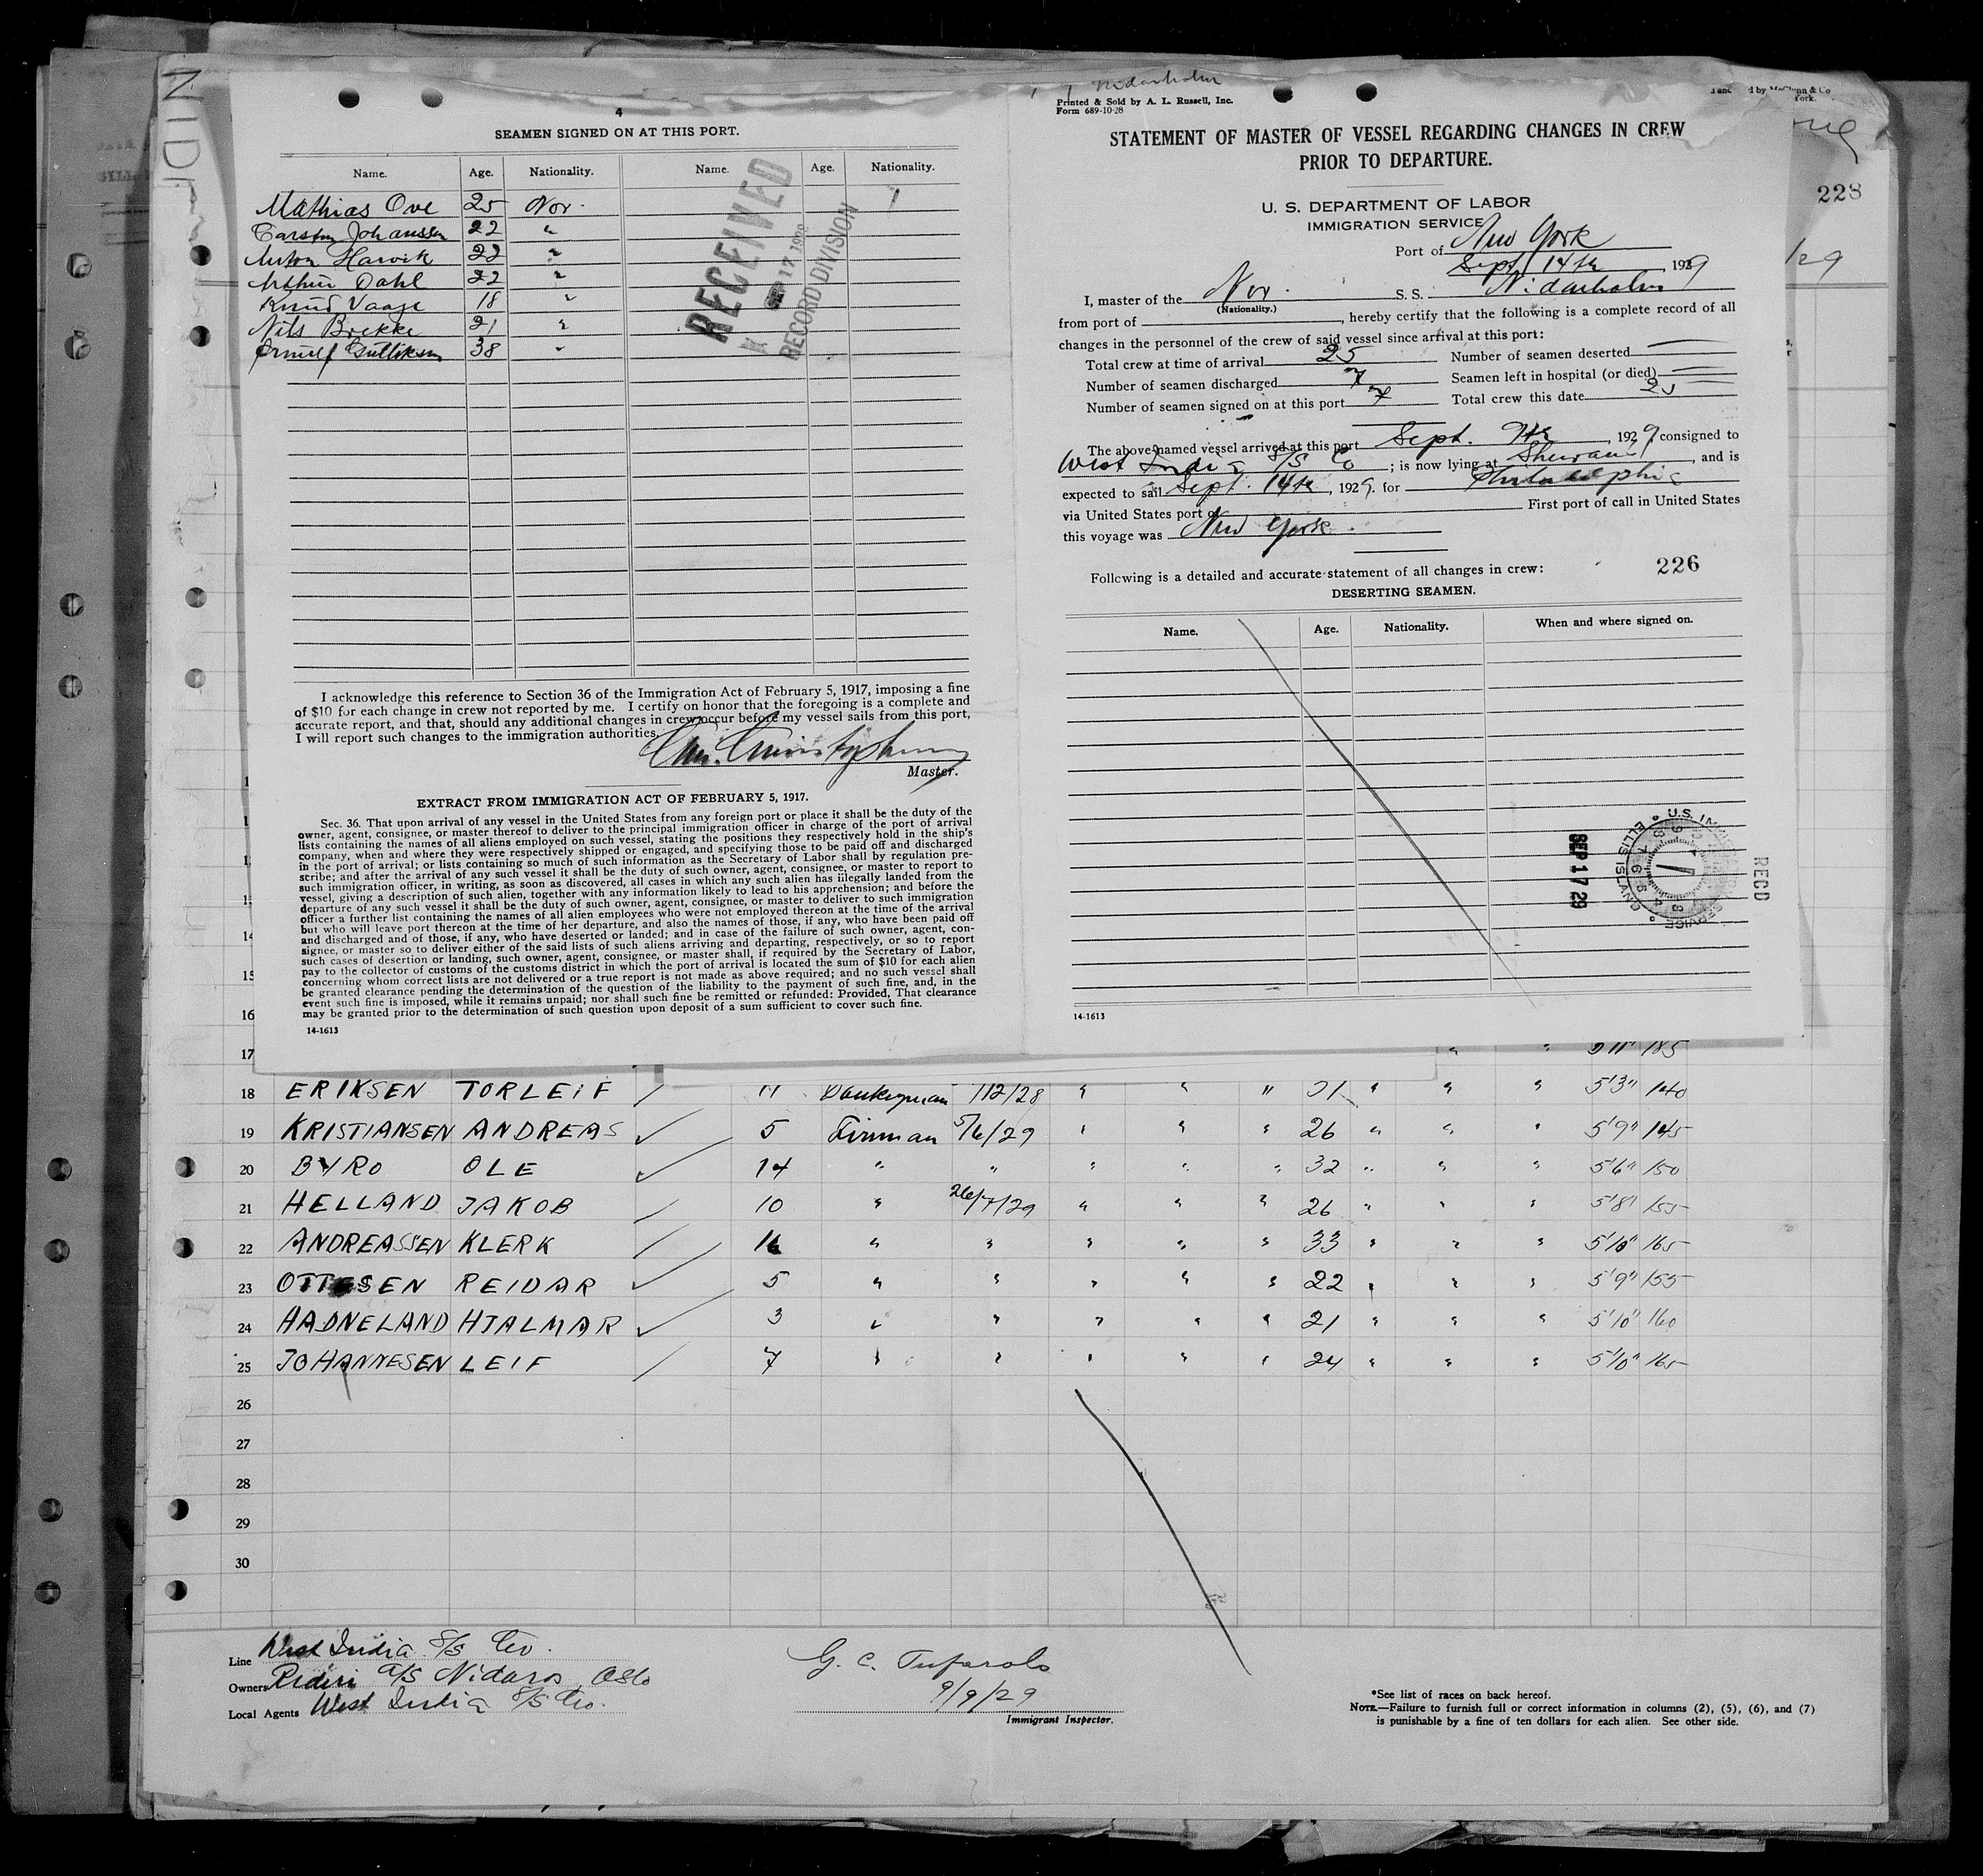 NIDA
4
SEAMEN SIGNED ON AT THIS PORT.
Name. Age. Nationality. Name. Age. Nationality.
Mathias Ove 25 Nor. 1
Carsten Johanssen 22 "
Anton Harvik 22 "
Arthur Dahl 22 "
Knud Vaage 18 "
Nils Brekke 21 "
Gulliksen 38 "
RECEIVED
SEP 17 1929
RECORD DIVISION
I acknowledge this reference to Section 36 of the Immigration Act of February 5, 1917, imposing a fine
of $10 for each change in crew not reported by me. I certify on honor that the foregoing is a complete and
accurate report, and that, should any additional changes in crew occur before my vessel sails from this port,
I will report such changes to the immigration authorities.
Master.
EXTRACT FROM IMMIGRATION ACT OF FEBRUARY 5, 1917.
Sec. 36. That upon arrival of any vessel in the United States from any foreign port or place it shall be the duty of the
owner, agent, consignee, or master thereof to deliver to the principal immigration officer in charge of the port of arrival
lists containing the names of all aliens employed on such vessel, stating the positions they respectively hold in the ship's
company, when and where they were respectively shipped or engaged, and specifying those to be paid off and discharged
in the port of arrival; or lists containing so much of such information as the Secretary of Labor shall by regulation pre-
scribe; and after the arrival of any such vessel it shall be the duty of such owner, agent, consignee, or master to report to
such immigration officer, in writing, as soon as discovered, all cases in which any such alien has illegally landed from the
vessel, giving a description of such alien, together with any information likely to lead to his apprehension; and before the
departure of any such vessel it shall be the duty of such owner, agent, consignee, or master to deliver to such immigration
officer a further list containing the names of all alien employees who were not employed thereon at the time of the arrival
but who will leave port thereon at the time of her departure, and also the names of those, if any, who have been paid off
and discharged and of those, if any, who have deserted or landed; and in case of the failure of such owner, agent, con-
signee, or master so to deliver either of the said lists of such aliens arriving and departing, respectively, or so to report
such cases of desertion or landing, such owner, agent, consignee, or master shall, if required by the Secretary of Labor,
pay to the collector of customs of the customs district in which the port of arrival is located the sum of $10 for each alien
concerning whom correct lists are not delivered or a true report is not made as above required; and no such vessel shall
be granted clearance pending the determination of the question of the liability to the payment of such fine, and, in the
event such fine is imposed, while it remains unpaid; nor shall such fine be remitted or refunded: Provided, That clearance
may be granted prior to the determination of such question upon deposit of a sum sufficient to cover such fine.
14-1613
Nidarholm
Printed & Sold by A. L. Russell, Inc.
Form 689-10-28
STATEMENT OF MASTER OF VESSEL REGARDING CHANGES IN CREW
PRIOR TO DEPARTURE.
U. S. DEPARTMENT OF LABOR
IMMIGRATION SERVICE
Port of New York
Sept 14th, 1929
I, master of the Nor. S. S. Nidarholm
(Nationality.)
from port of , hereby certify that the following is a complete record of all
changes in the personnel of the crew of said vessel since arrival at this port:
Total crew at time of arrival 25 Number of seamen deserted —
Number of seamen discharged 7 Seamen left in hospital (or died) —
Number of seamen signed on at this port 7 Total crew this date 25
The above-named vessel arrived at this port Sept. 9th, 1929, consigned to
West India S/S Co ; is now lying at , and is
expected to sail Sept. 14th, 1929. for Philadelphia
via United States port of First port of call in United States
this voyage was New York.
Following is a detailed and accurate statement of all changes in crew: 226
DESERTING SEAMEN.
Name. Age. Nationality. When and where signed on.
SEP 17 29
RECD
14-1613
228
/29
14
15
16
17 5'11" 185
18 ERIKSEN TORLEIF 11 Donkeyman 112/28 " " " 31 " " " 5'3" 140
19 KRISTIANSEN ANDREAS 5 Fireman 5/6/29 " " " 26 " " " 5'9" 145
20 BYRO OLE 14 " " " " " 32 " " " 5'6" 150
21 HELLAND JAKOB 10 " 26/7/29 " " " 26 " " " 5'8" 155
22 ANDREASSEN KLERK 16 " " " " " 33 " " " 5'10" 165
23 OTTESEN REIDAR 5 " " " " " 22 " " " 5'9" 155
24 HADNELAND HJALMAR 3 " " " " " 21 " " " 5'10" 160
25 JOHANNESEN LEIF 7 " " " " " 24 " " " 5'10" 165
26
27
28
29
30
Line West India S/S Co.
Owners Rederi A/S Nidaros, Oslo
Local Agents West India S/S Co.
G. C. Tufarolo
9/9/29
Immigrant Inspector.
*See list of races on back hereof.
NOTE.—Failure to furnish full or correct information in columns (2), (5), (6), and (7)
is punishable by a fine of ten dollars for each alien. See other side.